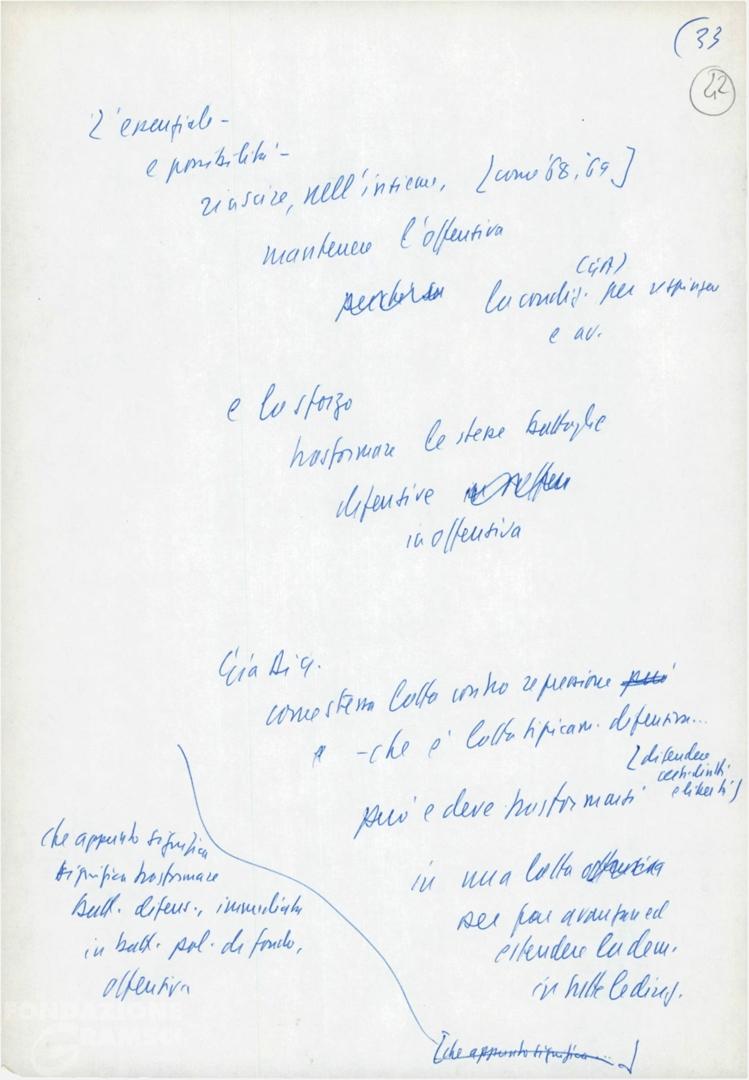 (33
42
L'essenziale -
e possibilità -
riuscire, nell'insieme, [come '68, '69]
mantenere l'offensiva
(già)
la condiz. per respingere
e av.
e lo sforzo
trasformare le stesse battaglie
difensive
in offensiva
Già dig.
come stessa lotta contro repressione può
- che è lotta tipicam. difensiva...
[difendere
certi diritti
e libertà]
può e deve trasformarsi
in una lotta offensiva
per far avanzare ed
estendere la dem.
in tutte le direz.
che appunto significa
significa trasformare
batt. difens., immediata
in batt. pol. di fondo,
offensiva
[che appunto significa ... ]
FONDAZIONE
GRAMSCI